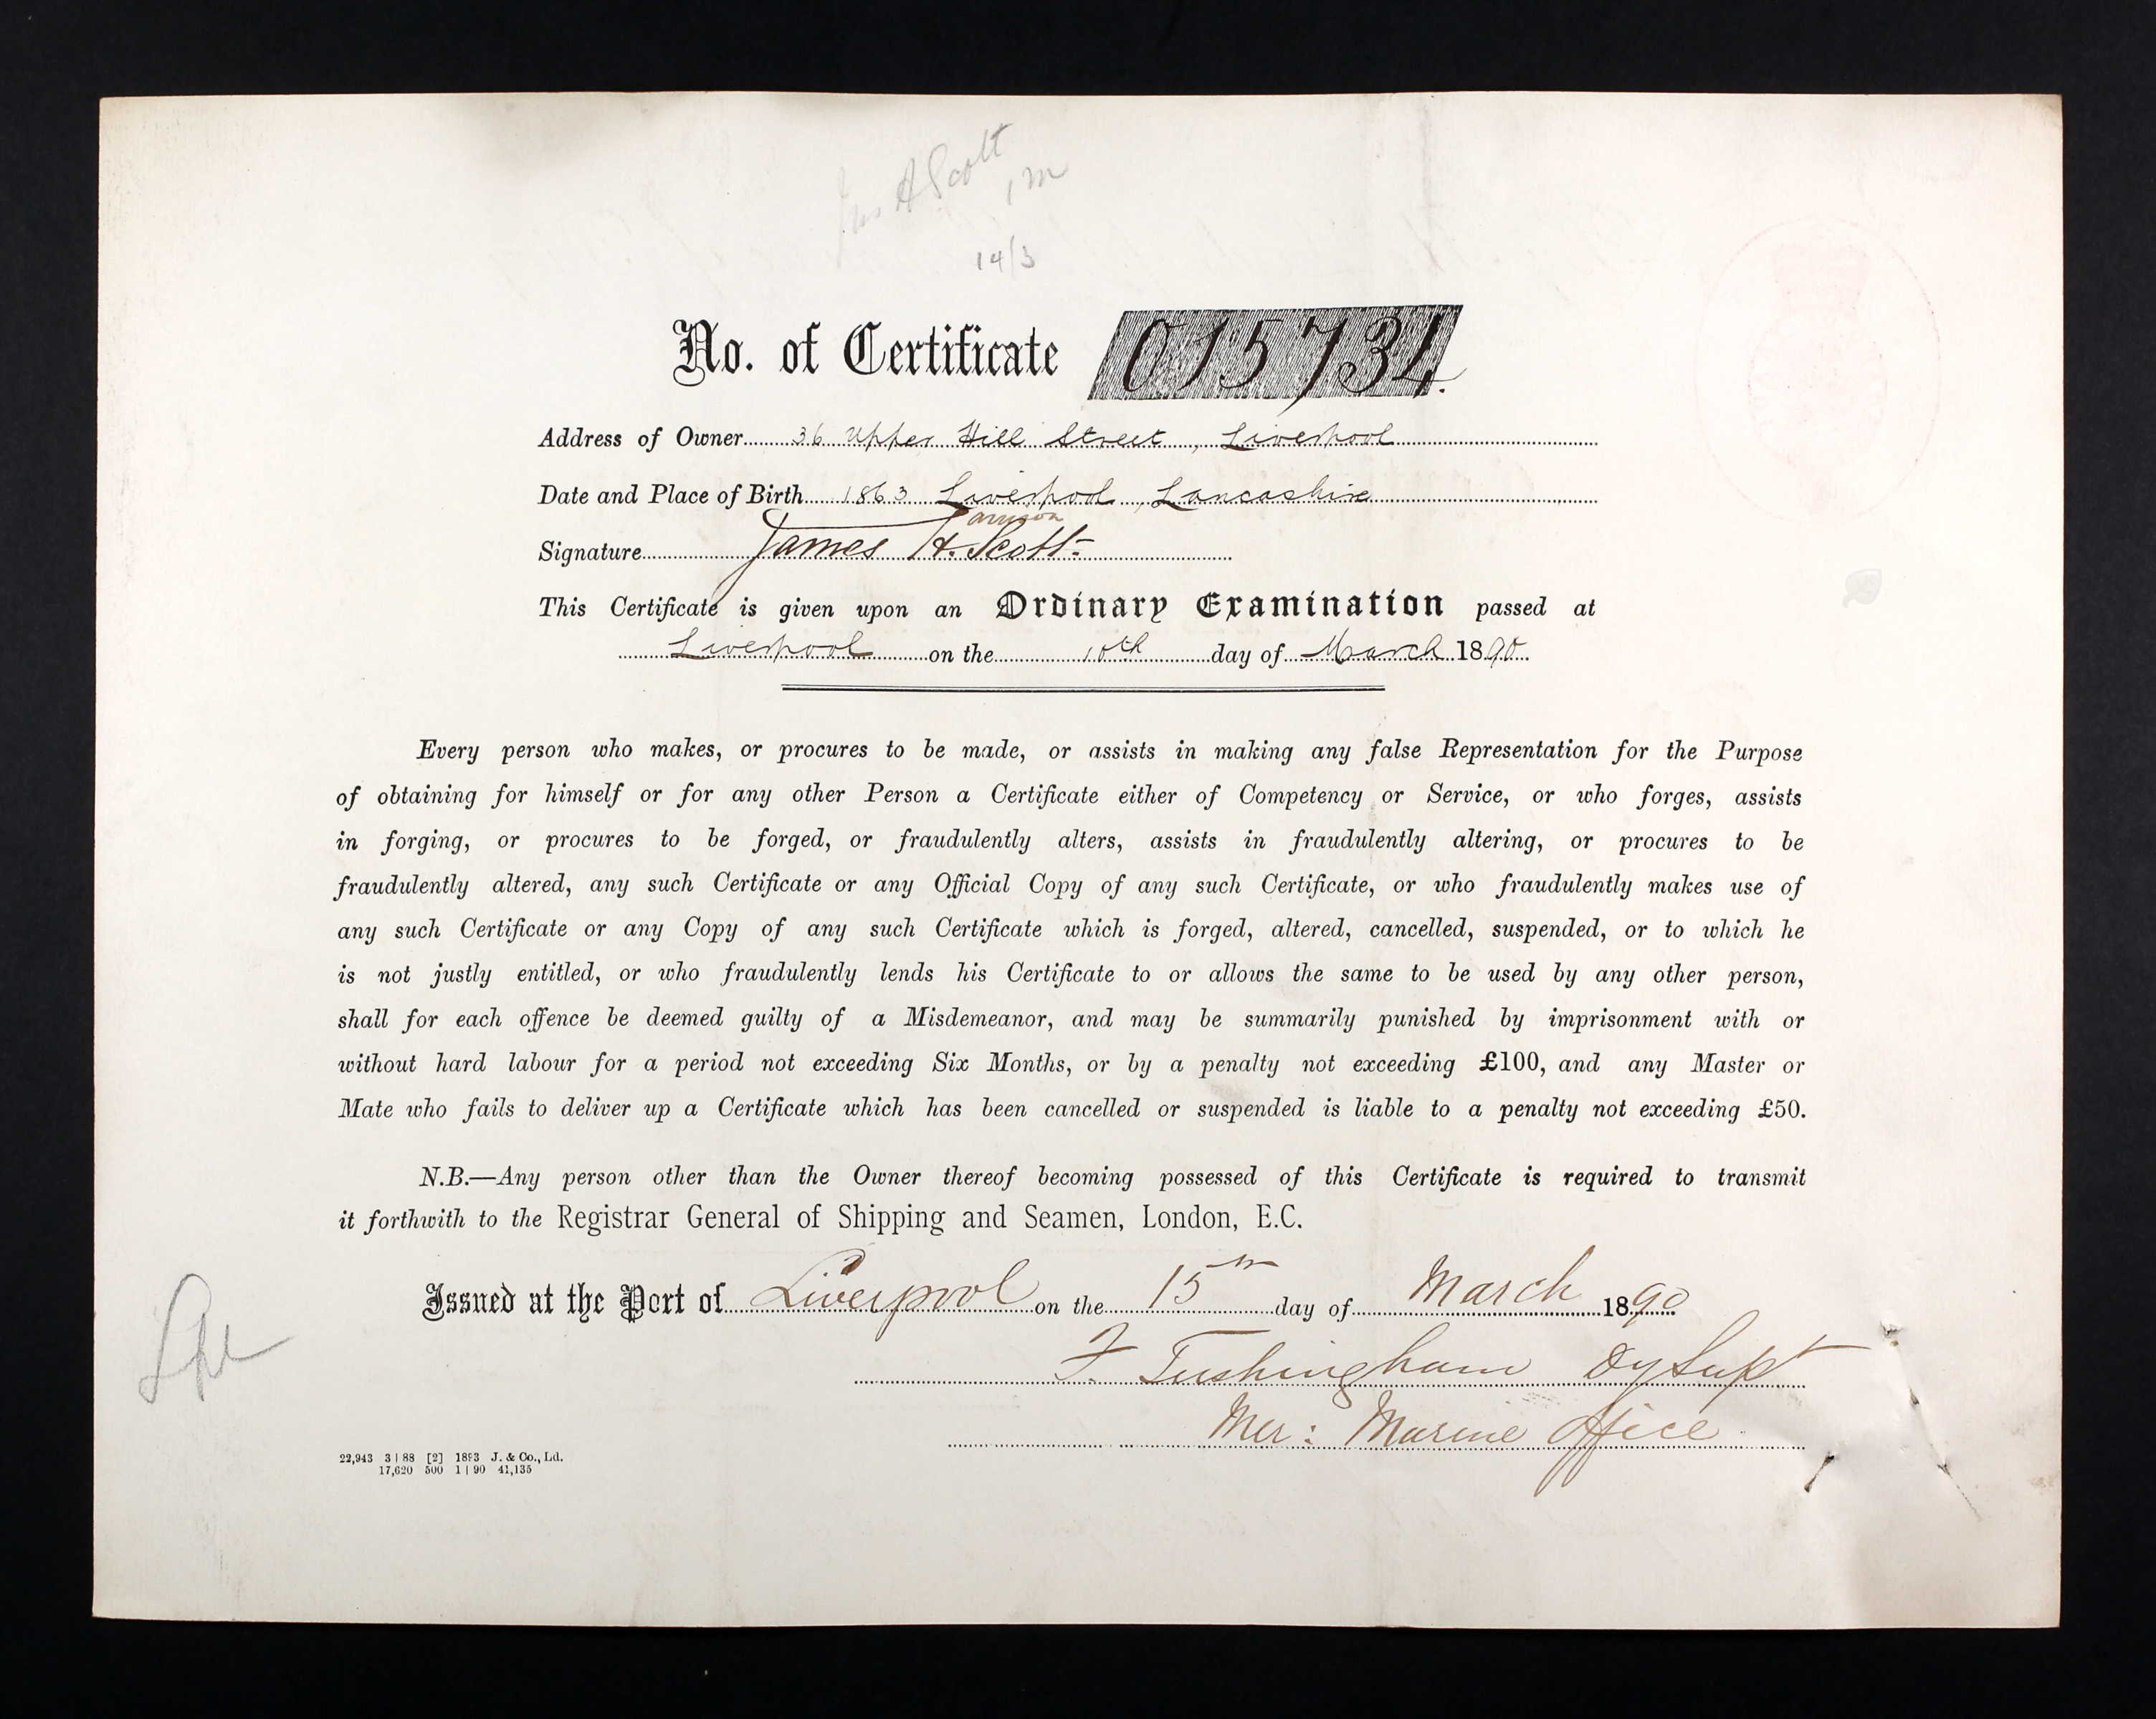 Jas A Scott
1 m
14/3
No. of Certificate 015734.
Address of Owner 36 Upper Hill Street, Liverpool
Date and Place of Birth 1863 Liverpool, Lancashire
Signature James H. Scott.
This Certificate is given upon an Ordinary Examination passed at
Liverpool on the 10th day of March 1890.
Every person who makes, or procures to be made, or assists in making any false Representation for the Purpose
of obtaining for himself or for any other Person a Certificate either of Competency or Service, or who forges, assists
in forging, or procures to be forged, or fraudulently alters, assists in fraudulently altering, or procures to be
fraudulently altered, any such Certificate or any Official Copy of any such Certificate, or who fraudulently makes use of
any such Certificate or any Copy of any such Certificate which is forged, altered, cancelled, suspended, or to which he
is not justly entitled, or who fraudulently lends his Certificate to or allows the same to be used by any other person,
shall for each offence be deemed guilty of a Misdemeanor, and may be summarily punished by imprisonment with or
without hard labour for a period not exceeding Six Months, or by a penalty not exceeding £100, and any Master or
Mate who fails to deliver up a Certificate which has been cancelled or suspended is liable to a penalty not exceeding £50.
N.B.—Any person other than the Owner thereof becoming possessed of this Certificate is required to transmit
it forthwith to the Registrar General of Shipping and Seamen, London, E.C.
Issued at the Port of Liverpool on the 15th day of March 1890
F. Tushingham Dy Supt
Mer: Marine Office
22,943 3|88 [2] 1893 J. & Co., Ld.
17,620 500 1|90 41,135